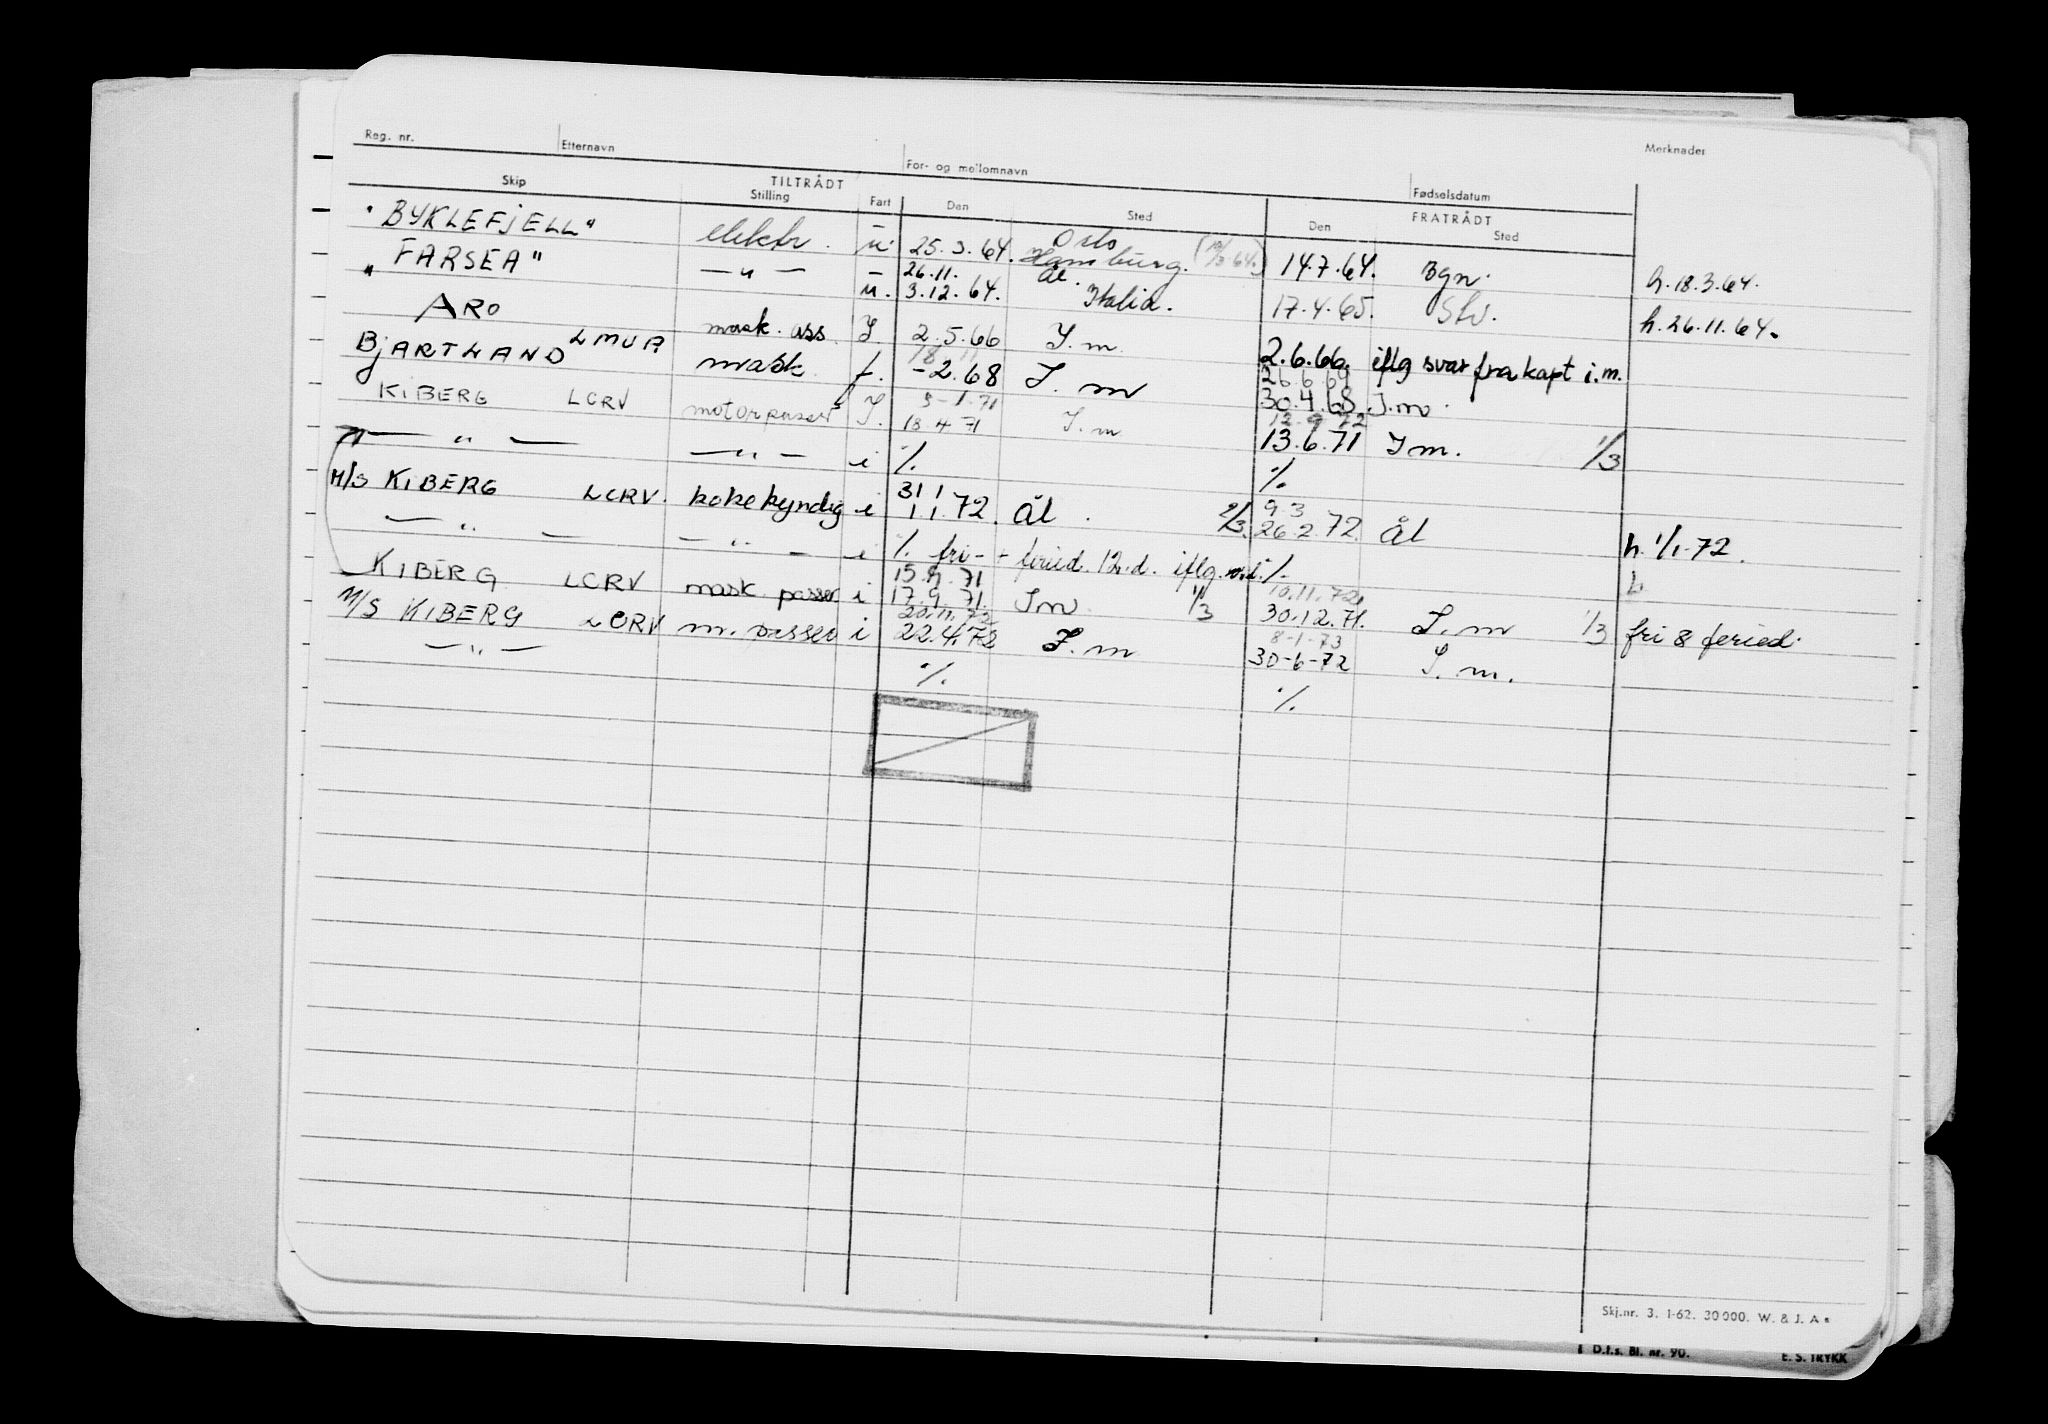 Reg. nr. Etternavn For- og mellomnavn Fødselsdatum Merknader
Skip TILTRÅDT Stilling Fart Den Sted FRATRÅDT Den Sted
"BYKLEFJELL" elektr. u. 25.3.64. Oslo Hamburg. 14.7.64. Bgn. h. 18.3.64.
"FARSEA" — " — u. 26.11. Ål. 3.12.64. Italia. 17.4.65. Stv. h. 26.11.64.
ARO mask. ass. I. 2.5.66 I.m 2.6.66. iflg svar fra kapt i.m.
BJARTLAND LMUA mask. f. -2.68 I.m 26.6.69 30.4.68 I.m.
KIBERG LCRV motorpasser I. 5-1-71 18.4.71 I.m 12.9.72 13.6.71 Im. 1/3
— " — — " — i ·/. ·/.
M/S KIBERG LCRV. kokekyndig i 31 1 1.1.72. Ål. 2/3. 9 3 26.2.72. Ål h. 1/1-72.
— " — — " — i ·/. fri - - feried. 12.d. iflg. ·/. h
KIBERG LCRV mask. passer i 15.9.71 17.9.71. Im 1/3 10.11.72 30.12.71. I.m 1/3 fri 8 feried.
M/S KIBERG LCRV m. passer i 20.11.72 22.4.72 I.m 8-1-73 30-6-72 I.m.
— " — ·/. ·/.
Skj.nr. 3. 1-62. 30000. W. & J. A s
D.f.s. Bl. nr. 90. E. S. TRYKK